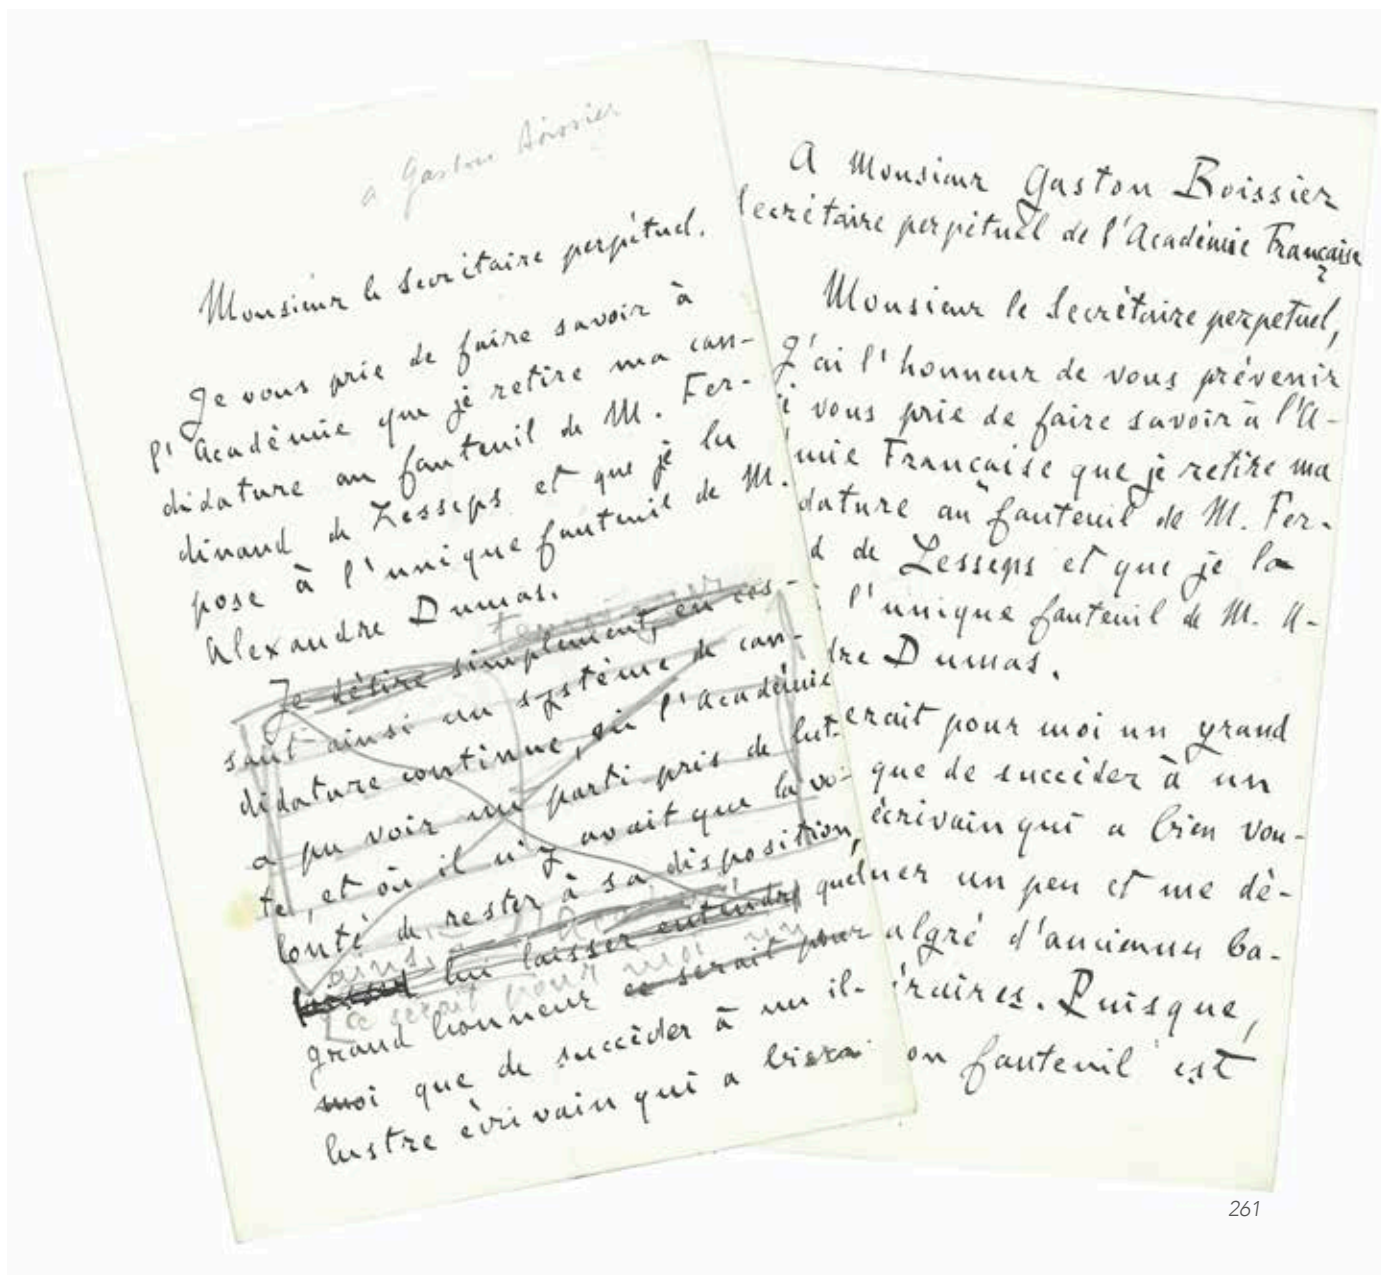 a Gaston Boissier
Monsieur le Secrétaire perpétuel.
Je vous prie de faire savoir à
l'Académie que je retire ma can-
didature au fauteuil de M. Fer-
dinand de Lesseps et que je la
pose à l'unique fauteuil de M.
Alexandre Dumas.
Je désire simplement, en ces-
sant ainsi un système de can-
didature continue, où l'Académie
a pu voir un parti pris de lut-
te, et où il n'y avait que la vo-
lonté de rester à sa disposition,
lui laisser entendre quel
ce serait pour moi un
grand honneur ce serait pour
moi que de succéder à un il-
lustre écrivain qui a bien
A Monsieur Gaston Boissier
Secrétaire perpétuel de l'Académie Française
Monsieur le Secrétaire perpetuel,
J'ai l'honneur de vous prévenir
vous prie de faire savoir à l'A-
mie Française que je retire ma
dature au fauteuil de M. Fer-
d de Lesseps et que je la
l'unique fauteuil de M. A-
dre Dumas.
erait pour moi un grand
que de succéder à un
écrivain qui a bien vou-
ner un peu et me dé-
algré d'anciennes ba-
raires. Puisque,
on fauteuil est
261